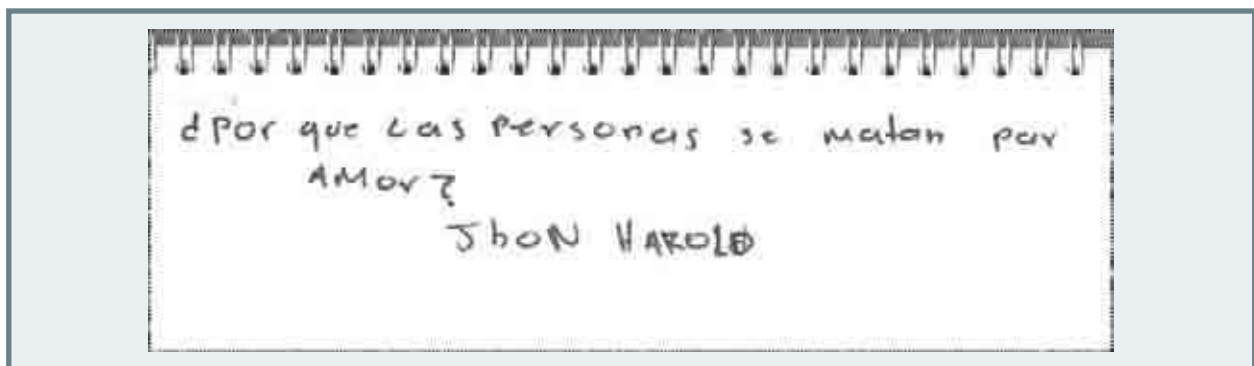 ¿Por que Las Personas se matan por
AMor?
JhoN HAROLD